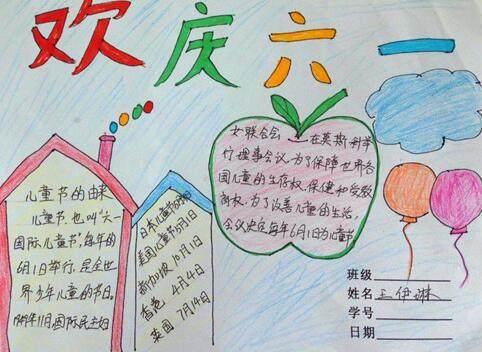 欢庆六一
儿童节的由来
儿童节,也叫“六一
国际儿童节,每年的
6月1日举行,是全世
界少年儿童的节日。
1949年11月,国际民主妇
日本儿童节
美国儿童节5月1日
新加坡 10月1日
香港 4月4日
英国 7月14日
女联合会 在莫斯科举
行理事会议,为了保障世界各
国儿童的生存权.保健和受教
育权,为了改善儿童的生活,
会议决定每年6月1日为儿童节
班级
姓名 王伊琳
学号
日期